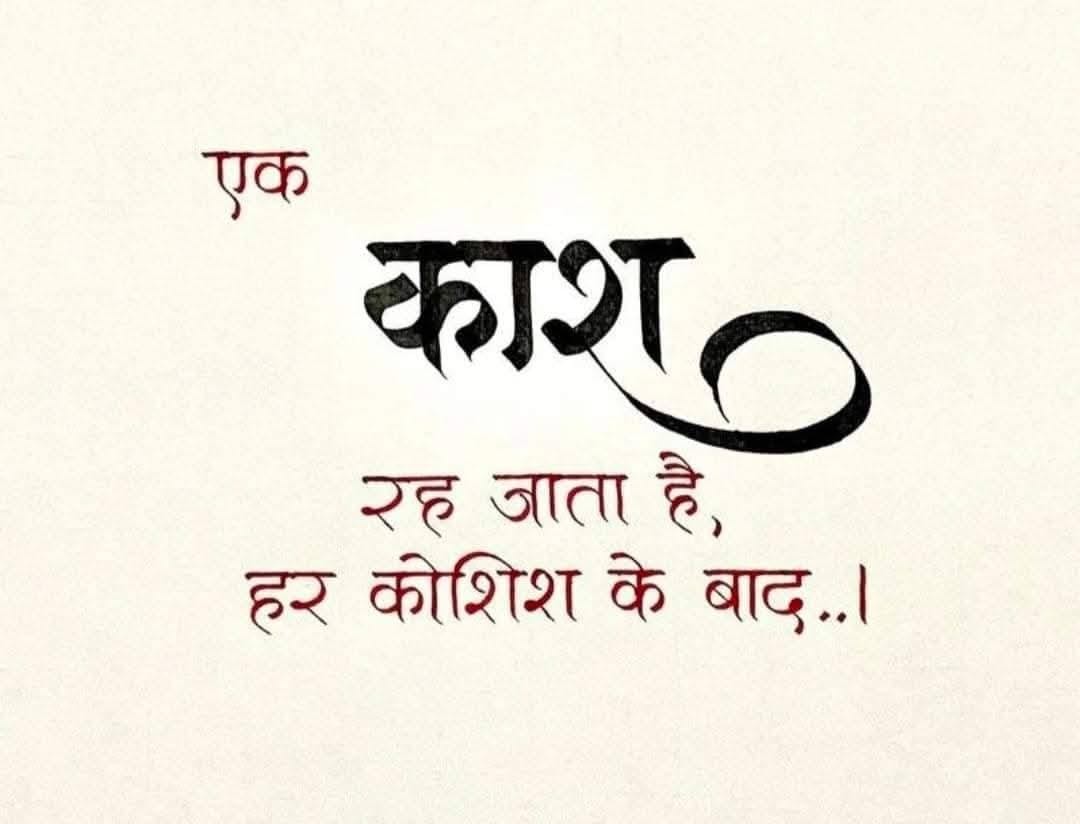 एक
काश
रह जाता है,
हर कोशिश के बाद..।